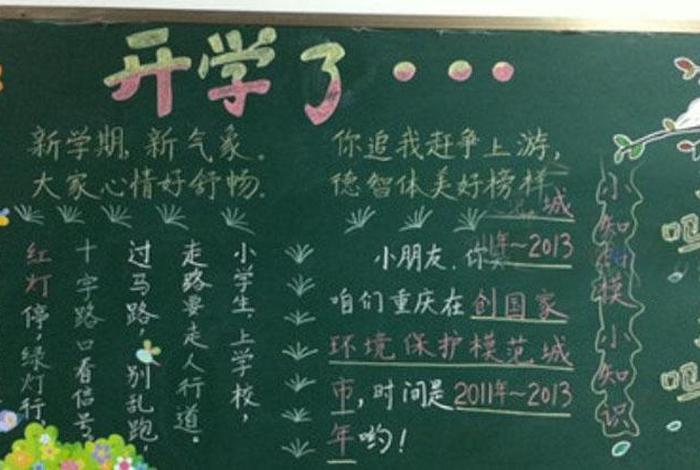 开学了···
新学期，新气象。
大家心情好舒畅。
你追我赶争上游，
德智体美好榜样
小学生，上学校，
走路要走人行道。
过马路，别乱跑，
十字路口看信号，
红灯停，绿灯行，
城
年~2013
小朋友，你
咱们重庆在创国家
环境保护模范城
市，时间是2011年~2013
年哟！
小知
模小知识
吧
吧